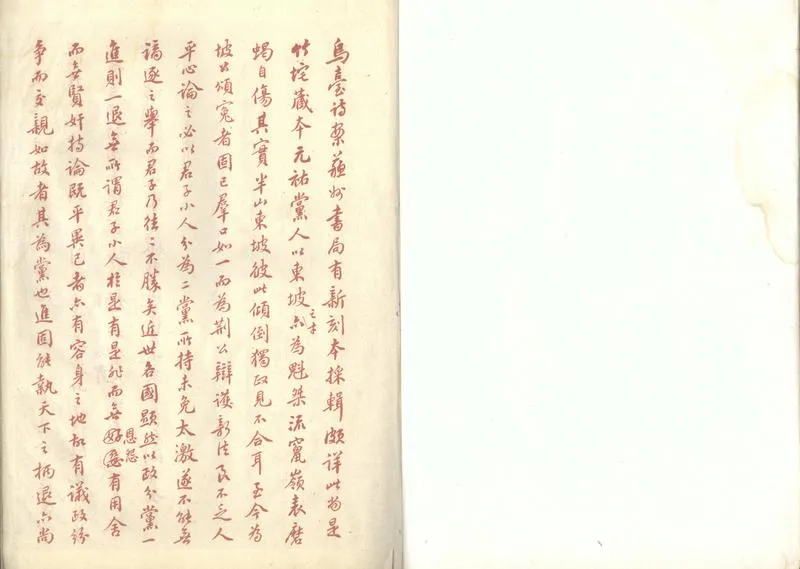 烏臺詩案蘇州書局有新刻本採輯頗詳此尚是
竹垞藏本元祐黨人以東坡之才亦為魁桀流竄嶺表磨
蝎自傷其實半山東坡彼此傾倒獨政見不合耳至今為
坡公頌冤者固已羣口如一而為荆公辯護新法良不乏人
平心論之必以君子小人分為二黨所持未免太激遂不能無
謫逐之舉而君子乃往〻不勝矣近世各國顯然以政分黨一
進則一退無所謂君子小人於是有是非而無好惡恩怨有用舍
而無賢奸持論既平異己者亦有容身之地故有議政紛
爭而交親如故者其為黨也進固能執天下之柄退亦尚